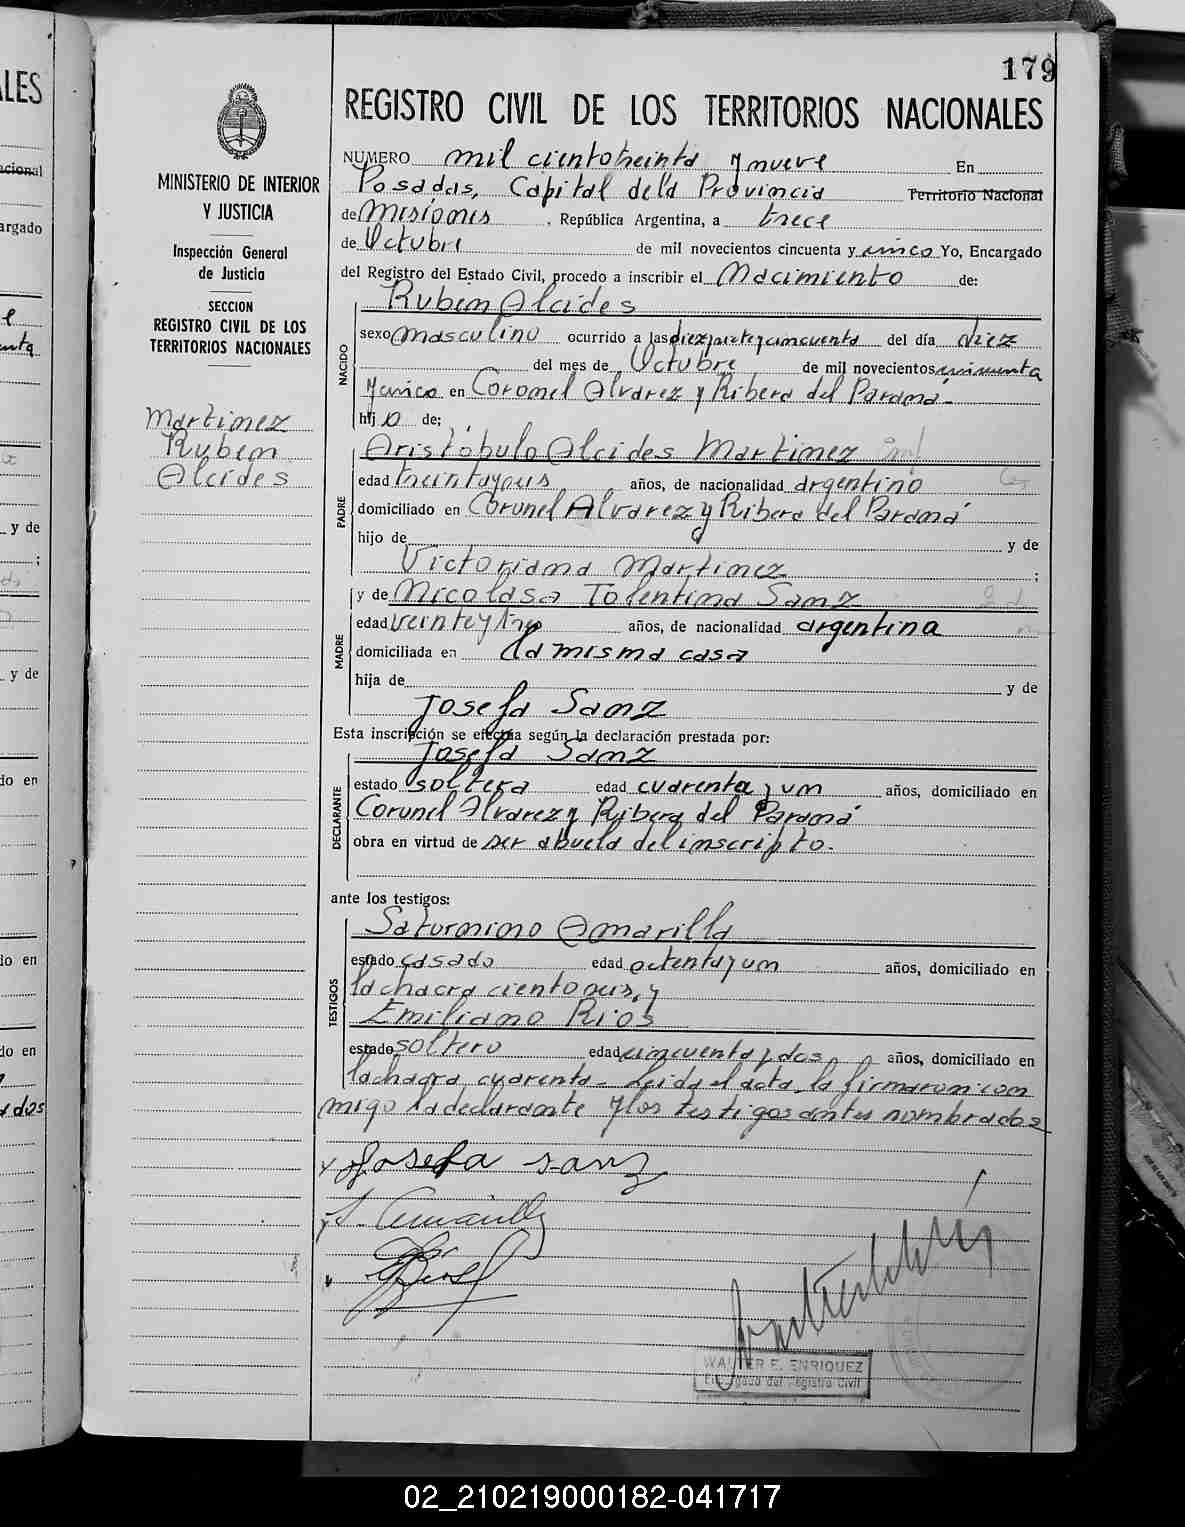 179
REGISTRO CIVIL DE LOS TERRITORIOS NACIONALES
MINISTERIO DE INTERIOR
Y JUSTICIA
Inspección General
de Justicia
SECCION
REGISTRO CIVIL DE LOS
TERRITORIOS NACIONALES
Martinez
Ruben
Alcides
NUMERO mil ciento treinta y nueve En
Posadas, Capital de la Provincia Territorio Nacional
de Misiones, República Argentina, a trece
de Octubre de mil novecientos cincuenta y cinco Yo, Encargado
del Registro del Estado Civil, procedo a inscribir el Nacimiento de:
Ruben Alcides
NACIDO
sexo masculino ocurrido a las diez y siete y cincuenta del día diez
del mes de Octubre de mil novecientos cincuenta
y cinco en Coronel Alvarez y Ribera del Paraná.
hijo de:
PADRE
Aristóbulo Alcides Martinez
edad treinta y seis años, de nacionalidad argentino
domiciliado en Coronel Alvarez y Ribera del Paraná
hijo de y de
Victoriana Martinez ;
MADRE
y de Nicolasa Tolentina Sanz
edad veinte y tres años, de nacionalidad argentina
domiciliada en la misma casa
hija de y de
Josefa Sanz
Esta inscripción se efectúa según la declaración prestada por:
DECLARANTE
Josefa Sanz
estado soltera edad cuarenta y un años, domiciliado en
Coronel Alvarez y Ribera del Paraná
obra en virtud de ser abuela del inscripto.
ante los testigos:
TESTIGOS
Saturnino Amarilla
estado casado edad octenta y un años, domiciliado en
la chacra ciento seis, y
Emiliano Rios
estado soltero edad cincuenta y dos años, domiciliado en
la chacra cuarenta. Leida el acta, la firmaron con
migo la declarante y los testigos antes nombrados
Josefa Sanz
S. Amarilla
WALTER E. ENRIQUEZ
Encargado del Registro Civil
02_210219000182-041717